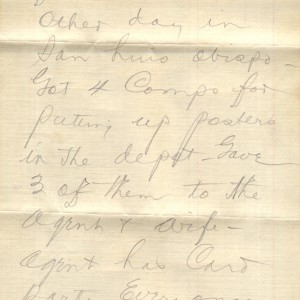 Other day in
San Luis obispo -
Got 4 Comps for
puting up posters
in the depot - Gave
3 of them to the
Agent & wife -
Agent has Card